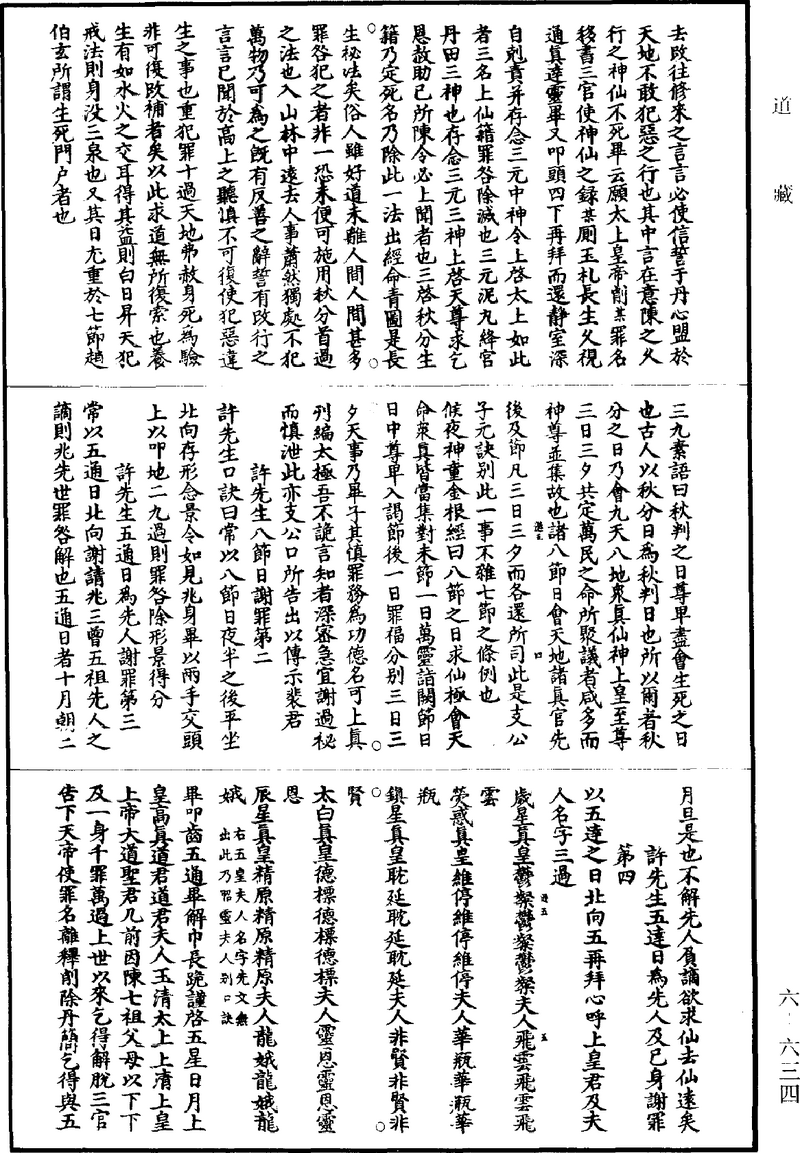 道藏
去改往修來之言言必使信誓于丹心盟於
天地不敢犯惡之行也其中言在意陳之久
行之神仙不死畢云願太上皇帝削某罪名
移書三官使神仙之錄某厠玉札長生久視
通真達靈畢又叩頭四下再拜而還静室深
自剋責并存念三元中神令上啓太上如此
者三名上仙籍罪咎除滅也三元泥丸絳宫
丹田三神也存念三元三神上啓天尊求乞
恩赦助已所陳令必上聞者也三啓秋分生
籍乃定死名乃除此一法出經命青圖是長
生祕法矣俗人雖好道未離人間人間甚多
罪咎犯之者非一恐未便可施用秋分首過
之法也入山林中遠去人事蕭然獨處不犯
萬物乃可為之旣有反善之辭誓有改行之
言言已聞於高上之聽慎不可復使犯惡違
生之事也重犯罪十過天地弗赦身死為驗
非可復改補者矣以此求道無所復索也養
生有如水火之交耳得其益則白日昇天犯
戒法則身没三泉也又其日尤重於七節趙
伯玄所謂生死門户者也
三九素語曰秋判之日尊卑盡會生死之日
也古人以秋分日為秋判日也所以爾者秋
分之日乃會九天八地衆真仙神上皇至尊
三日三夕共定萬民之命所聚議者咸多而
神尊並集故也諸八節日會天地諸真官先
後及節凡三日三夕而各還所司此是支公
子元訣别此一事不雜七節之條例也
候夜神童金根經曰八節之日求仙極會天
命衆真皆當集對未節一日萬靈詣闕節日
日中尊卑入謁節後一日罪福分别三日三
夕天事乃畢子其慎罪務為功德名可上真
刋編太極吾不詭言知者深密急宜謝過祕
而慎泄此亦支公口所告出以傳示裴君
許先生八節日謝罪第二
許先生口訣曰常以八節日夜半之後平坐
北向存形念景令如見兆身畢以兩手交頭
上以叩地二九過則罪咎除形景得分
許先生五通日為先人謝罪第三
常以五通日北向謝請兆三曾五祖先人之
謫則兆先世罪咎解也五通日者十月朝二
月旦是也不解先人負謫欲求仙去仙遠矣
許先生五達日為先人及已身謝罪
第四
以五達之日北向五再拜心呼上皇君及夫
人名字三過
歲星真皇鬱粲鬱粲鬱粲夫人飛雲飛雲飛
雲
熒惑真皇維停維停維停夫人華瓶華瓶華
瓶
鎮星真皇耽延耽延耽延夫人非賢非賢非
賢
太白真皇德標德標德標夫人靈恩靈恩靈
恩
辰星真皇精原精原精原夫人龍娥龍娥龍
娥 右五皇夫人名字先文無
出此乃昭靈夫人别口訣
畢叩齒五通畢解巾長跪謹啓五星日月上
皇高真道君道君夫人玉清太上上清上皇
上帝大道聖君几前因陳七祖父母以下下
及一身千罪萬過上世以來乞得解脱三官
告下天帝使罪名離釋削除丹簡乞得與五
六·六三四